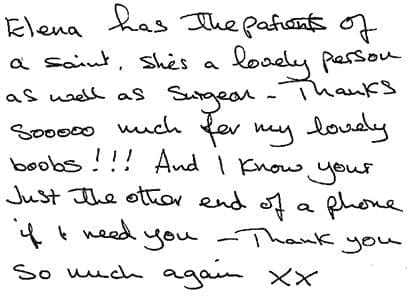 Elena has The patients of
a saint, shes a lovely person
as well as Surgeon - Thanks
Sooooo much for my lovely
boobs!!! And I know your
Just The other end of a phone
if I need you - Thank you
So much again xx